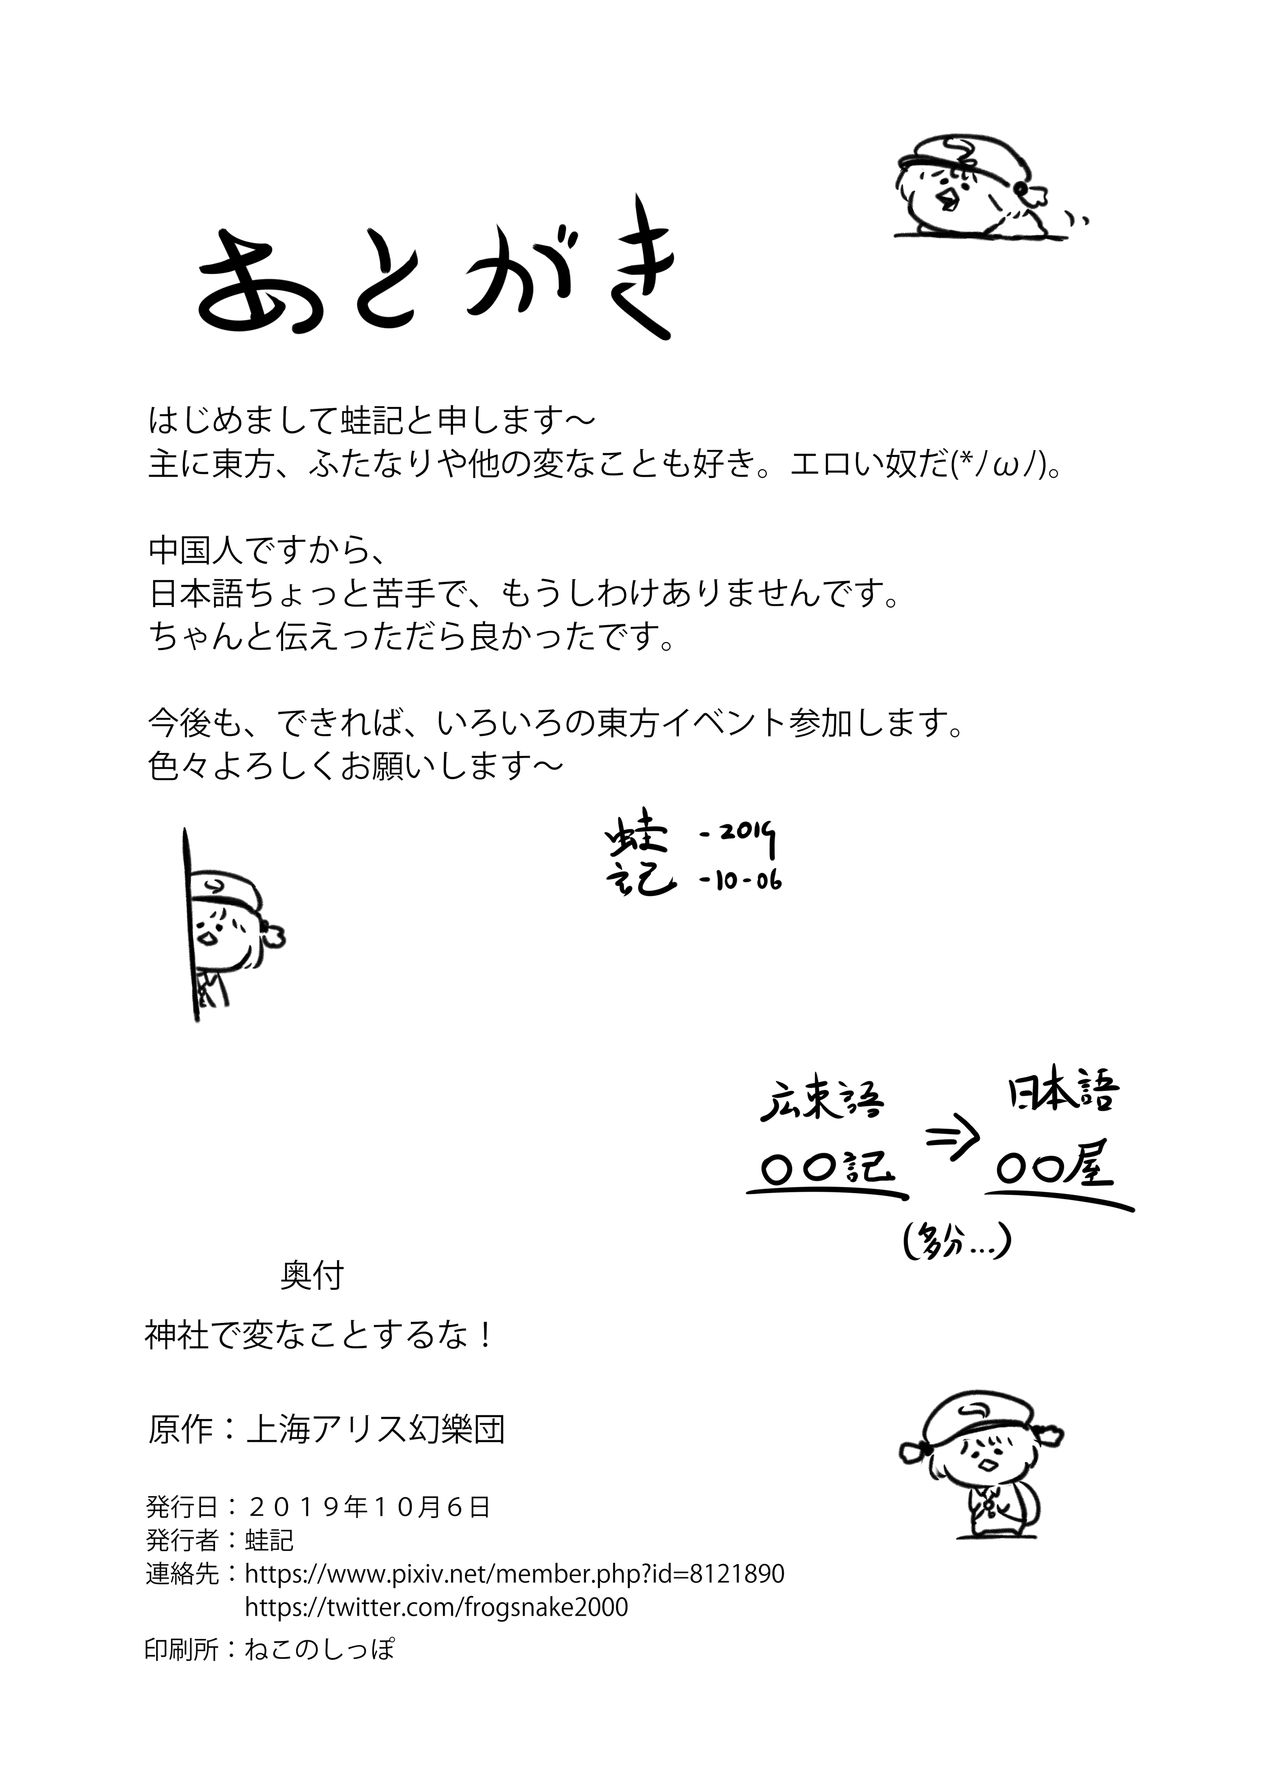 あとがき
はじめまして蛙記と申します～
主に東方、ふたなりや他の変なことも好き。エロい奴だ(*ﾉωﾉ)。
中国人ですから、
日本語ちょっと苦手で、もうしわけありませんです。
ちゃんと伝えっただら良かったです。
今後も、できれば、いろいろの東方イベント参加します。
色々よろしくお願いします～
蛙記 -2019
-10-06
広東語 ⇒ 日本語
〇〇記 〇〇屋
(多分...)
奥付
神社で変なことするな！
原作：上海アリス幻樂団
発行日：２０１９年１０月６日
発行者：蛙記
連絡先：https://www.pixiv.net/member.php?id=8121890
https://twitter.com/frogsnake2000
印刷所：ねこのしっぽ